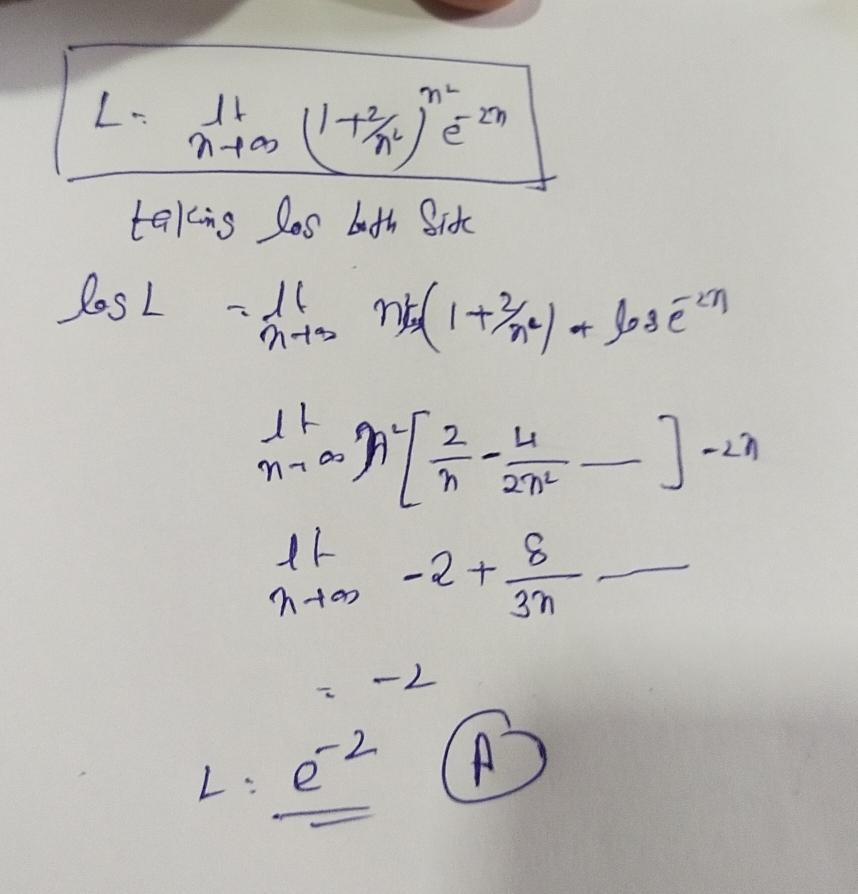 L = lt n→∞ (1+2/n²)^n² e^-2n
taking log both Side
log L = lt n→∞ n² log(1+2/n²) + log e^-2n
lt n→∞ n² [2/n - 4/2n² —] -2n
lt n→∞ -2 + 8/3n —
= -2
L = e^-2 A